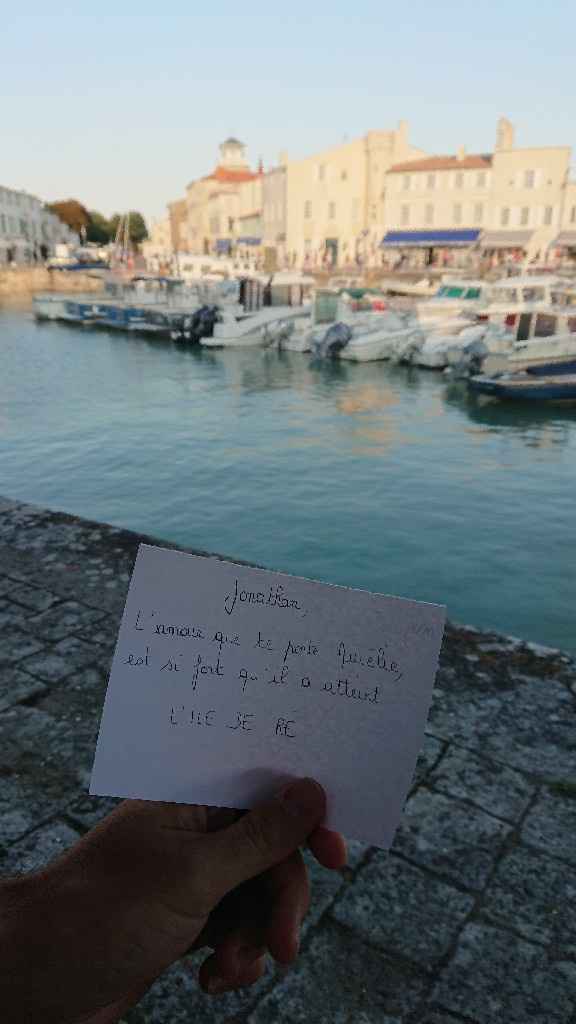 Jonathan,
L'amour que te porte Aurélie,
est si fort qu'il a atteint
L'ILE DE RÉ